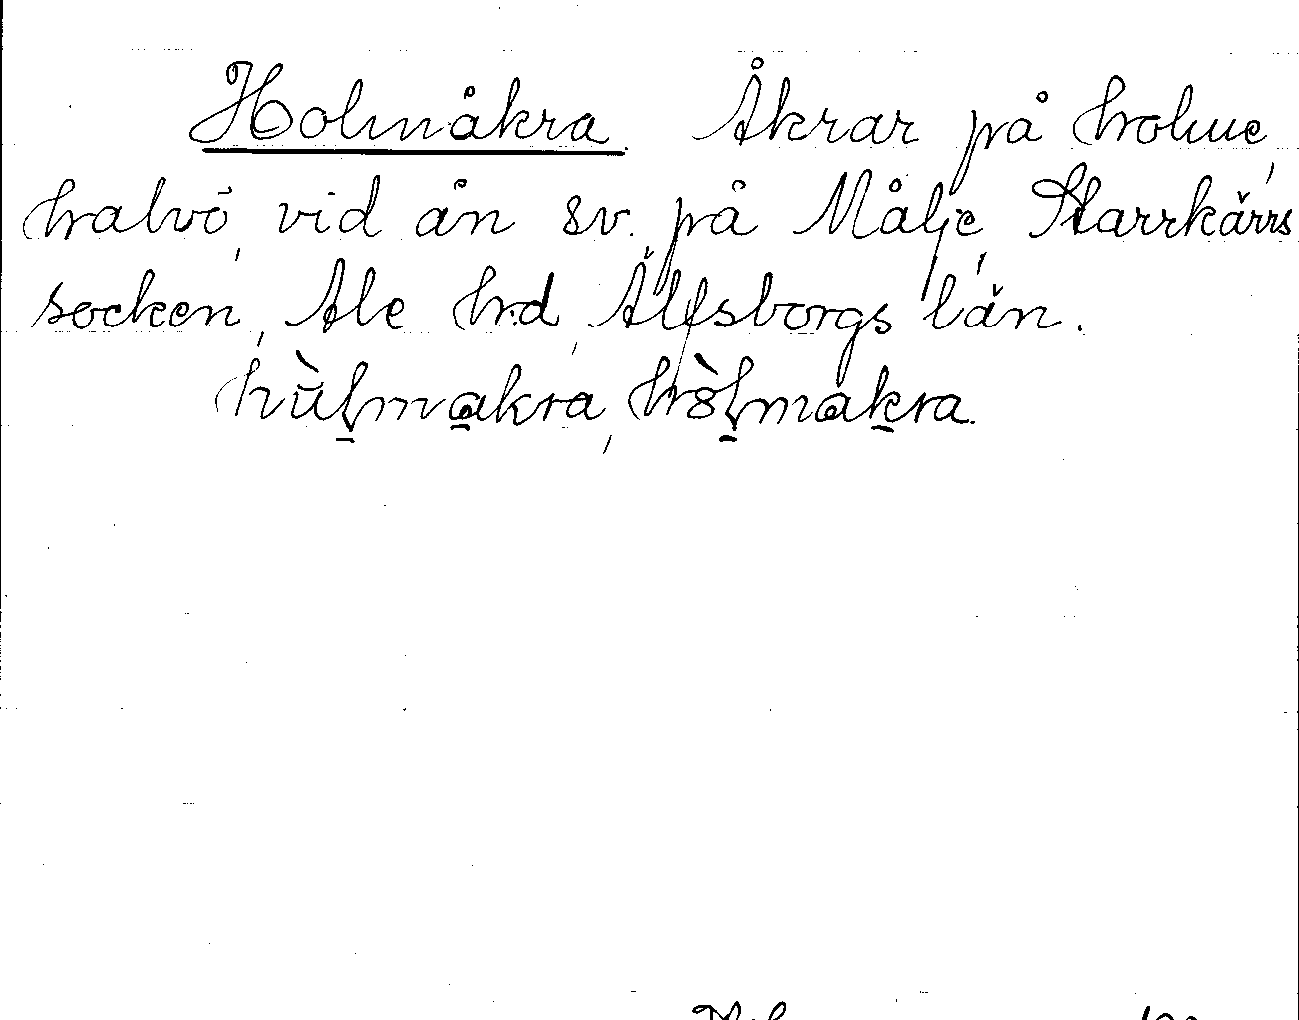 Holmåkra. Åkrar på holme,
halvö, vid ån sv. på Målje, Starrkärrs
socken, Ale hd, Älfsborgs län.
hùl̠ma̠kra, hòl̠måk̠ra.